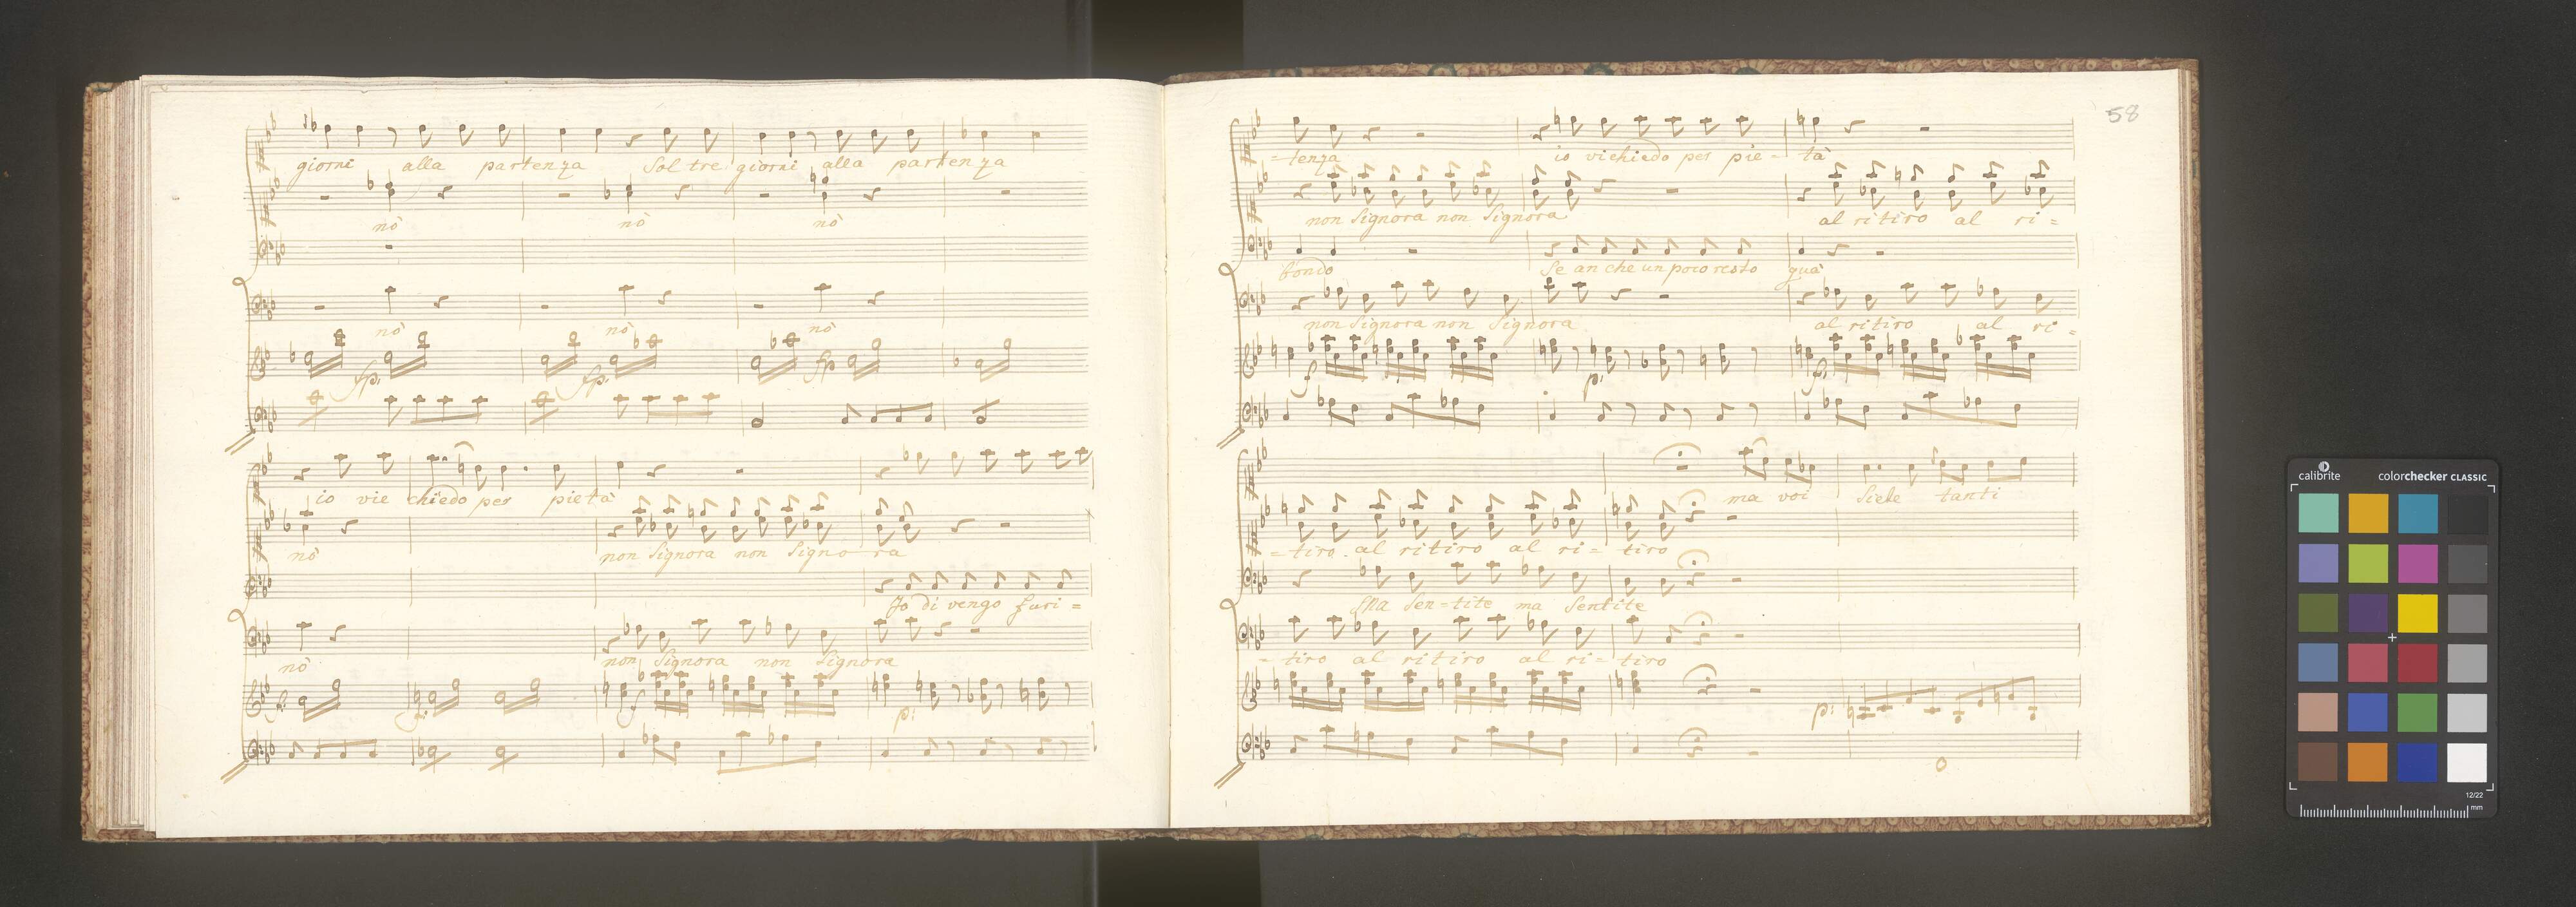 giorni alla partenza Sol tre giorni alla partenza
nò nò nò
nò nò nò
fp. fp. fp
io vie chiedo per pietà
nò non Signora non Signora
Jo di vengo furi=
nò non Signora non Signora
f. f. f p:
58
=tenza io vi chiedo per pie=tà
non Signora non Signora al ritiro al ri=
bondo Se an che un poco resto quà
non Signora non Signora al ritiro al ri=
f p: f
ma voi Siete tanti
=tiro al ritiro al ri=tiro
Ma Sen=tite ma Sentite
=tiro al ritiro al ri=tiro
p:
calibrite colorchecker CLASSIC
12/22
mm